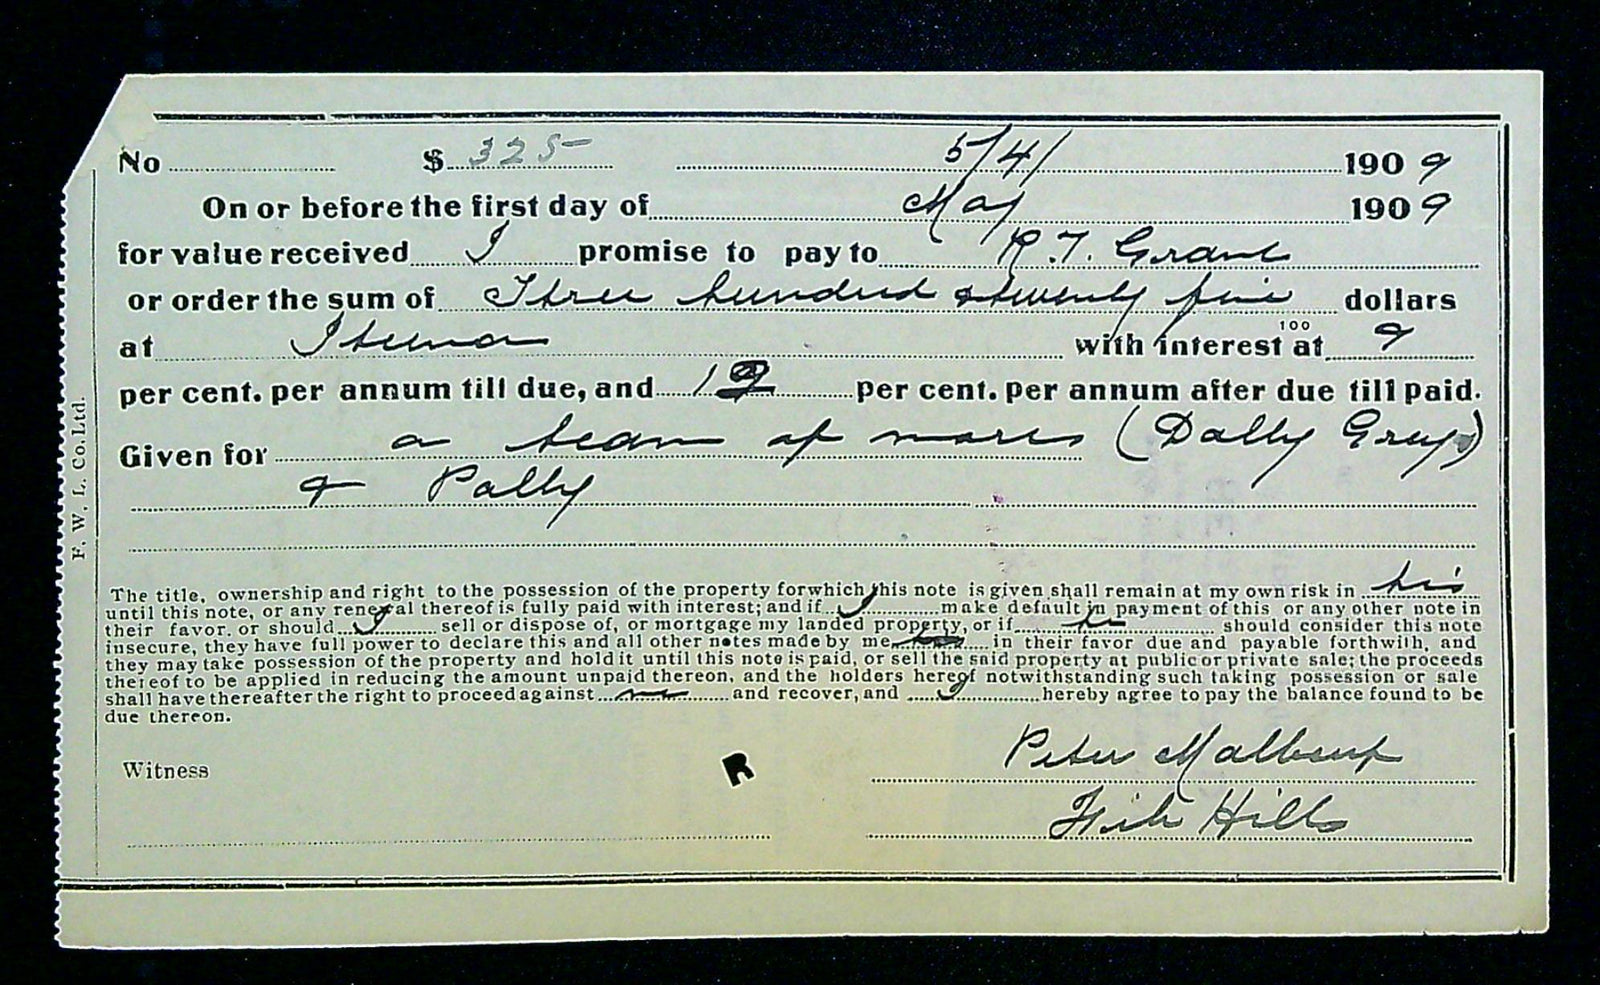 No $ 325 5/4/ 1909
On or before the first day of May 1909
for value received I promise to pay to R.T. Grant
or order the sum of Three hundred & twenty five dollars
100
at with interest at 9
per cent. per annum till due, and 12 per cent. per annum after due till paid.
Given for a team of mares (Dolly Grey)
& Polly
The title, ownership and right to the possession of the property for which this note is given shall remain at my own risk in his
until this note, or any renewal thereof is fully paid with interest; and if I make default in payment of this or any other note in
their favor. or should I sell or dispose of, or mortgage my landed property, or if he should consider this note
insecure, they have full power to declare this and all other notes made by me in their favor due and payable forthwith, and
they may take possession of the property and hold it until this note is paid, or sell the said property at public or private sale; the proceeds
thereof to be applied in reducing the amount unpaid thereon, and the holders hereof notwithstanding such taking possession or sale
shall have thereafter the right to proceed against me and recover, and I hereby agree to pay the balance found to be
due thereon.
Peter
Witness R
Hills
F. W. L. Co. Ltd.